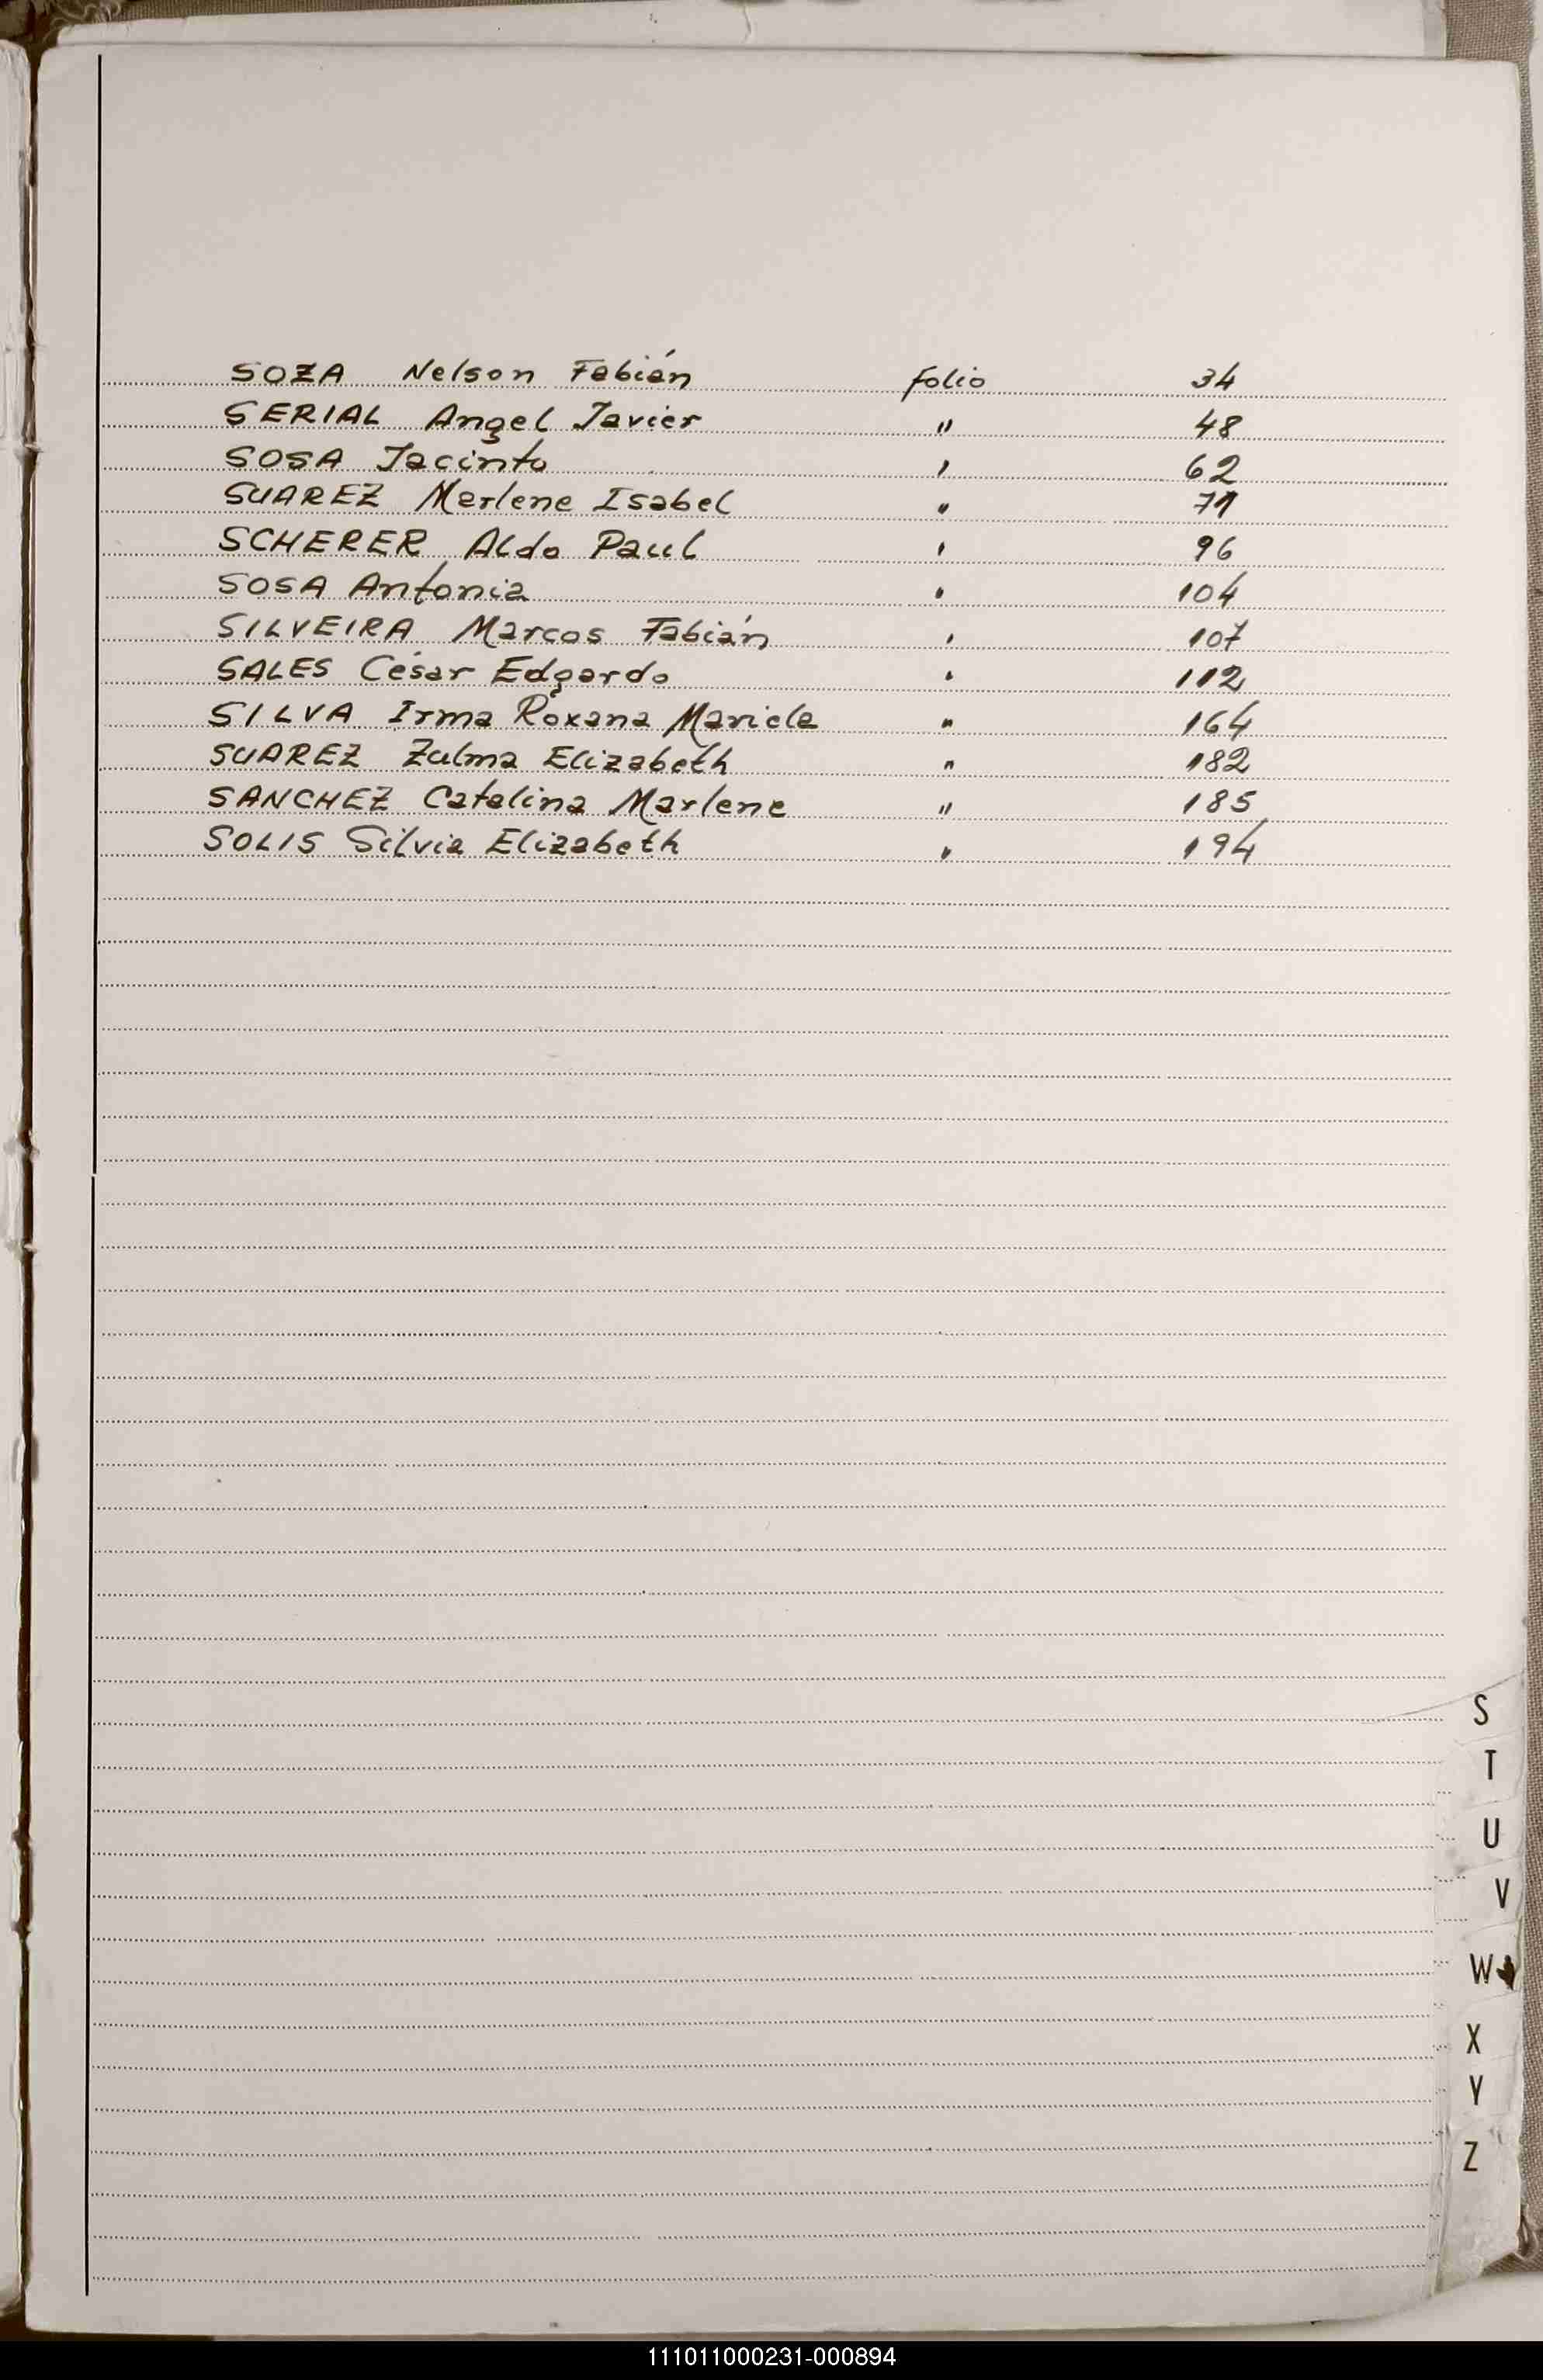 SOZA Nelson Fabián folio 34
SERIAL Angel Javier " 48
SOSA Jacinto " 62
SUAREZ Marlene Isabel " 71
SCHERER Aldo Paul " 96
SOSA Antonia " 104
SILVEIRA Marcos Fabián " 107
SALES César Edgardo " 112
SILVA Irma Roxana Mariela " 164
SUAREZ Zulma Elizabeth " 182
SANCHEZ Catalina Marlene " 185
SOLIS Silvia Elizabeth " 194
S
T
U
V
W
X
Y
Z
111011000231-000894